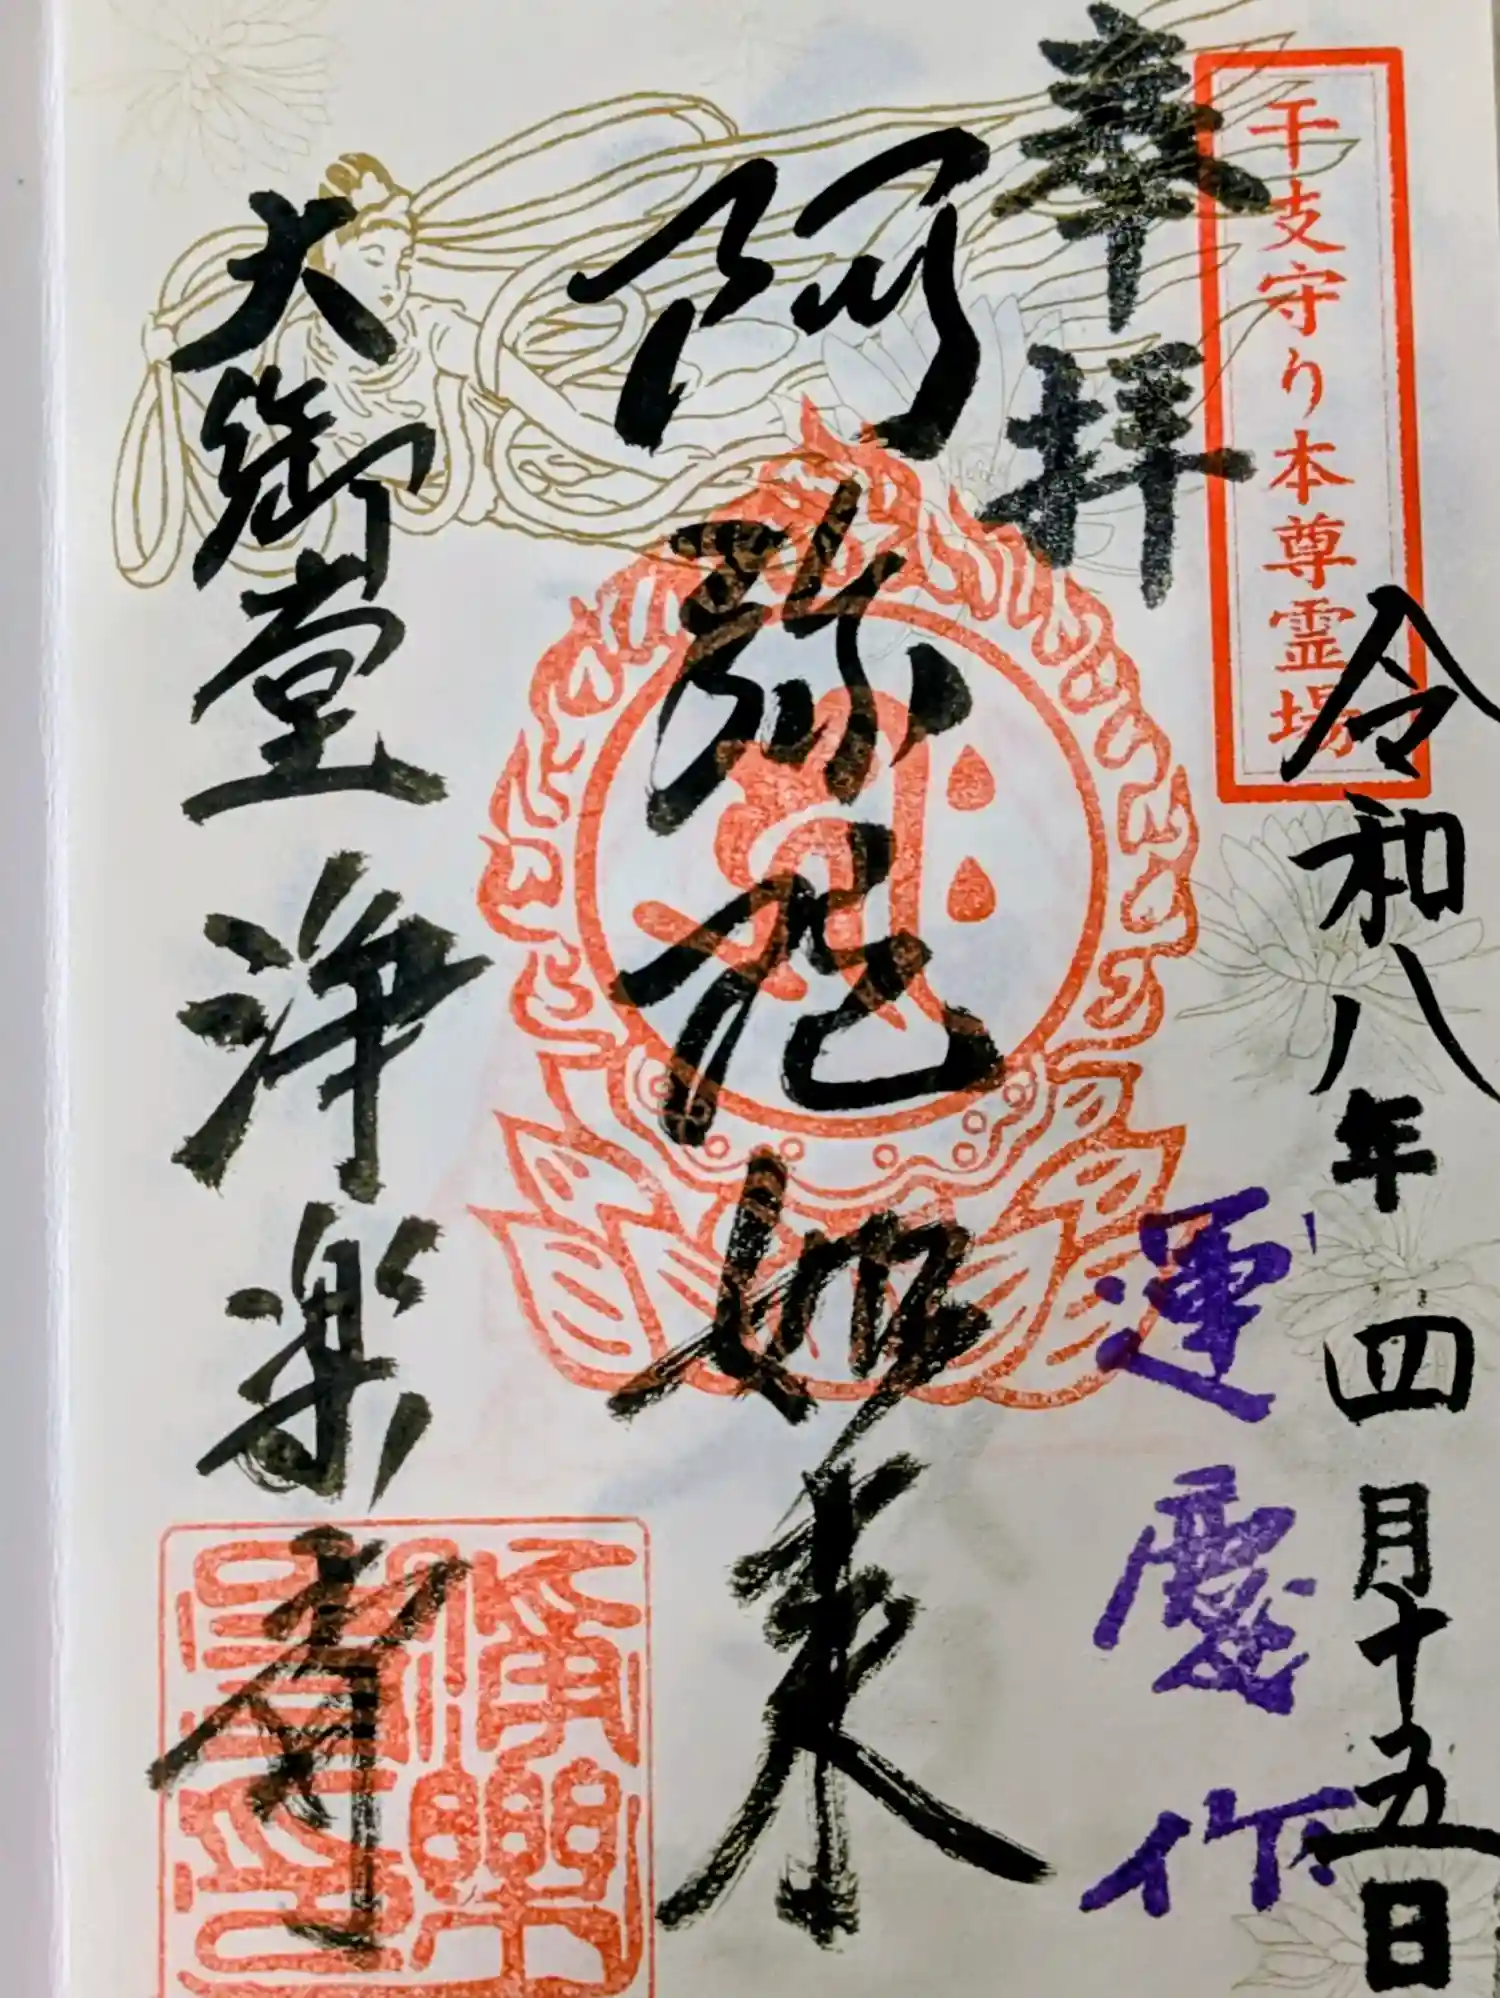 干支守り本尊霊場
令和八年四月十五日
奉拝
運慶作
阿弥陀如来
大御堂浄楽寺